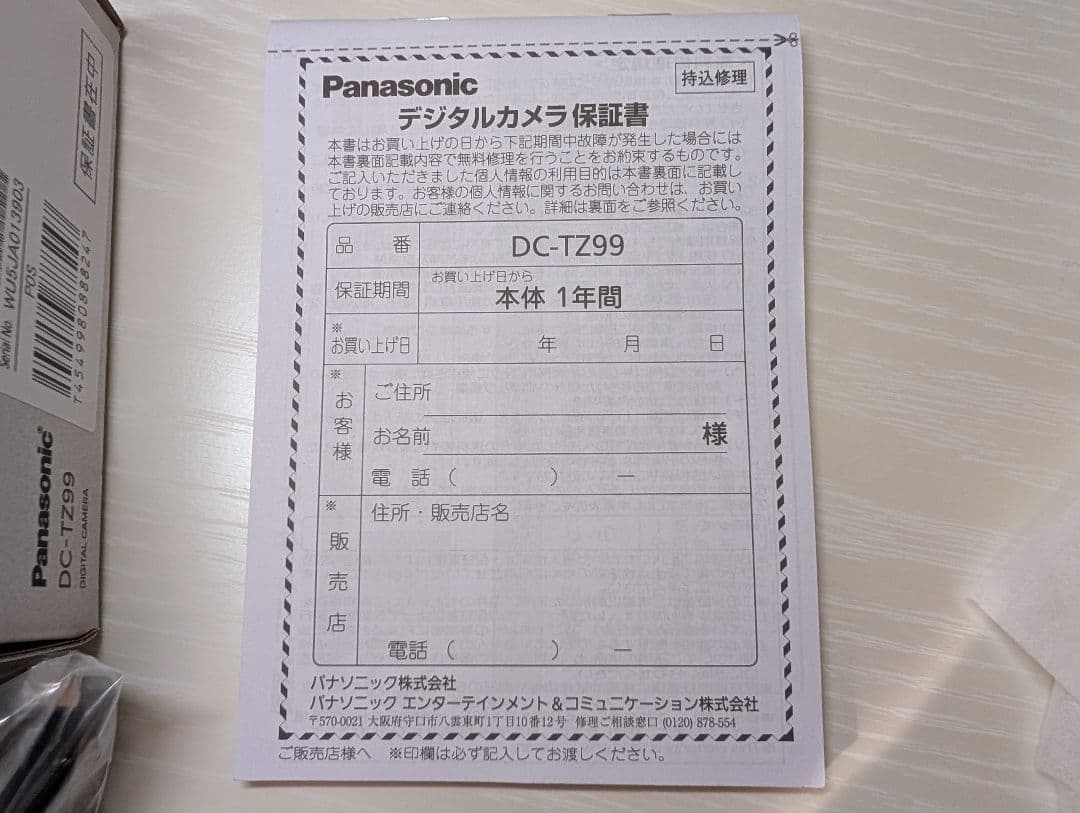 Panasonic
持込修理
デジタルカメラ 保証書
本書はお買い上げの日から下記期間中故障が発生した場合には
本書裏面記載内容で無料修理を行うことをお約束するものです。
ご記入いただきました個人情報の利用目的は本書裏面に記載し
ております。お客様の個人情報に関するお問い合わせは、お買い
上げの販売店にご連絡ください。詳細は裏面をご参照ください。
品 番 DC-TZ99
保証期間 お買い上げ日から
本体 1年間
※
お買い上げ日 年 月 日
※
お客様
ご住所
お名前 様
電 話 ( ) ー
※
販売店
住所・販売店名
電話 ( ) ー
パナソニック株式会社
パナソニック エンターテインメント&コミュニケーション株式会社
〒570-0021 大阪府守口市八雲東町1丁目10番12号 修理ご相談窓口 (0120) 878-554
ご販売店様へ ※印欄は必ず記入してお渡しください。
保証書在中
Serial No WU5JA013903
POS
T4549980888247
Panasonic
DC-TZ99
DIGITAL CAMERA